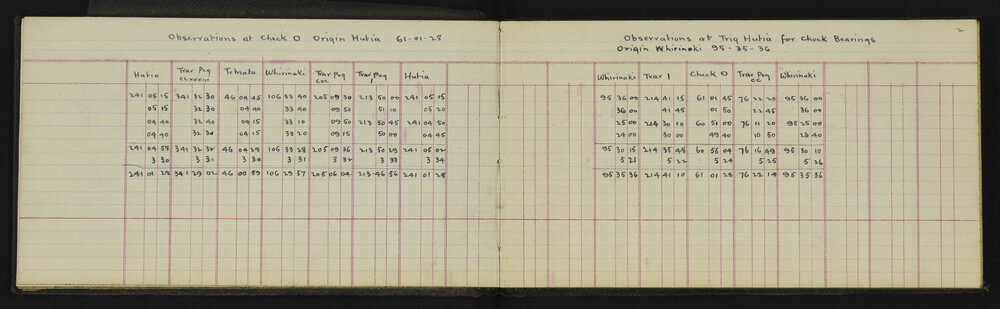 Observations at Check O Origin Hutia 61-01-28
Hutia Trav Peg CLXXXIII Tahata Whirinaki Trav Peg CXC Trav Peg 1 Hutia
241 05 15 341 32 30 46 04 45 106 33 40 205 09 30 213 50 00 241 05 15
05 15 32 30 04 40 33 40 09 50 51 10 05 20
04 40 32 40 04 15 33 10 09 50 213 50 45 241 04 50
04 40 32 30 04 15 33 20 09 15 50 00 04 45
241 04 58 341 32 32 46 04 29 106 33 28 205 09 36 213 50 29 241 05 02
3 30 3 30 3 30 3 31 3 32 3 33 3 34
241 01 28 341 29 02 46 00 59 106 29 57 205 06 04 213 46 56 241 01 28
2
Observations at Trig Hutia for Check Bearings
Origin Whirinaki 95-35-36
Whirinaki Trav 1 Check O Trav Peg Whirinaki
95 36 00 214 41 15 61 01 45 76 22 20 95 36 00
36 00 41 45 01 50 22 45 36 00
25 00 214 30 10 60 51 00 76 11 20 95 25 00
24 00 30 00 49 40 10 50 23 40
95 30 15 214 35 48 60 56 04 76 16 49 95 30 10
5 21 5 22 5 24 5 25 5 26
95 35 36 214 41 10 61 01 28 76 22 14 95 35 36